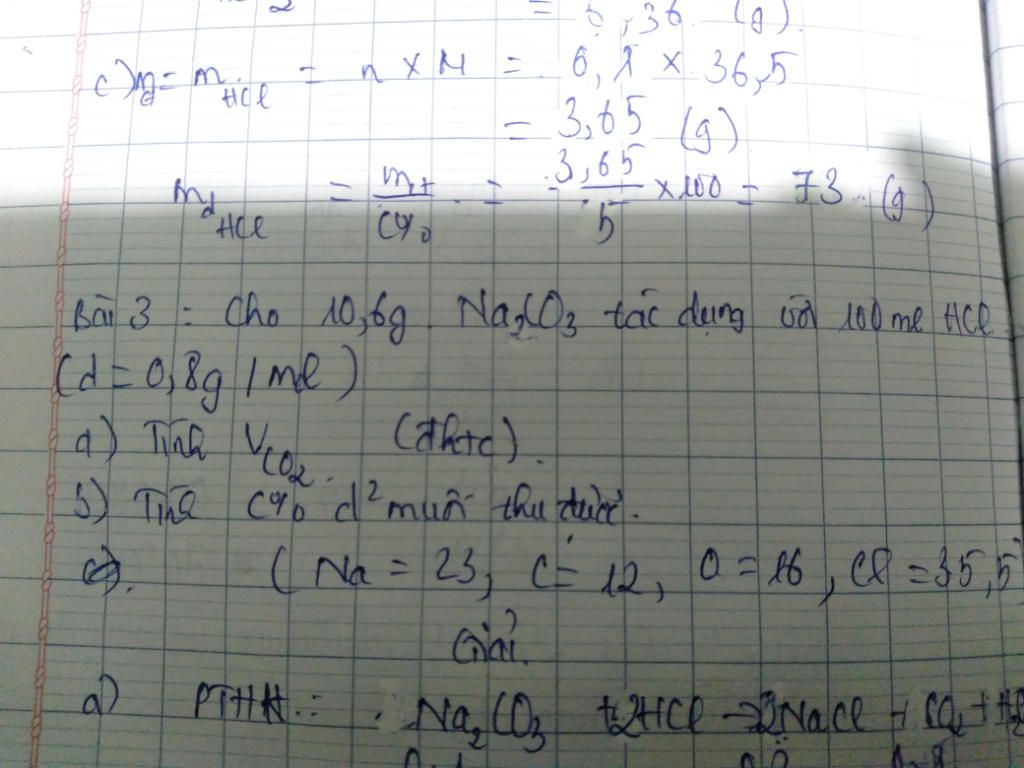 = 5,36 (g).
c) m = m HCl = n × M = 0,1 × 36,5
= 3,65 (g)
m d HCl = mct / C% = 3,65 / 5 × 100 = 73 (g)
Bài 3 : Cho 10,6g Na2CO3 tác dụng với 100ml HCl
(d = 0,8g /ml)
a) Tính VCO2. (đktc).
b) Tính C% d² muối thu được.
c). ( Na = 23, C = 12, O = 16, Cl = 35,5
Giải.
a) PTHH : Na2CO3 + 2HCl → 2NaCl + CO2 + H2O